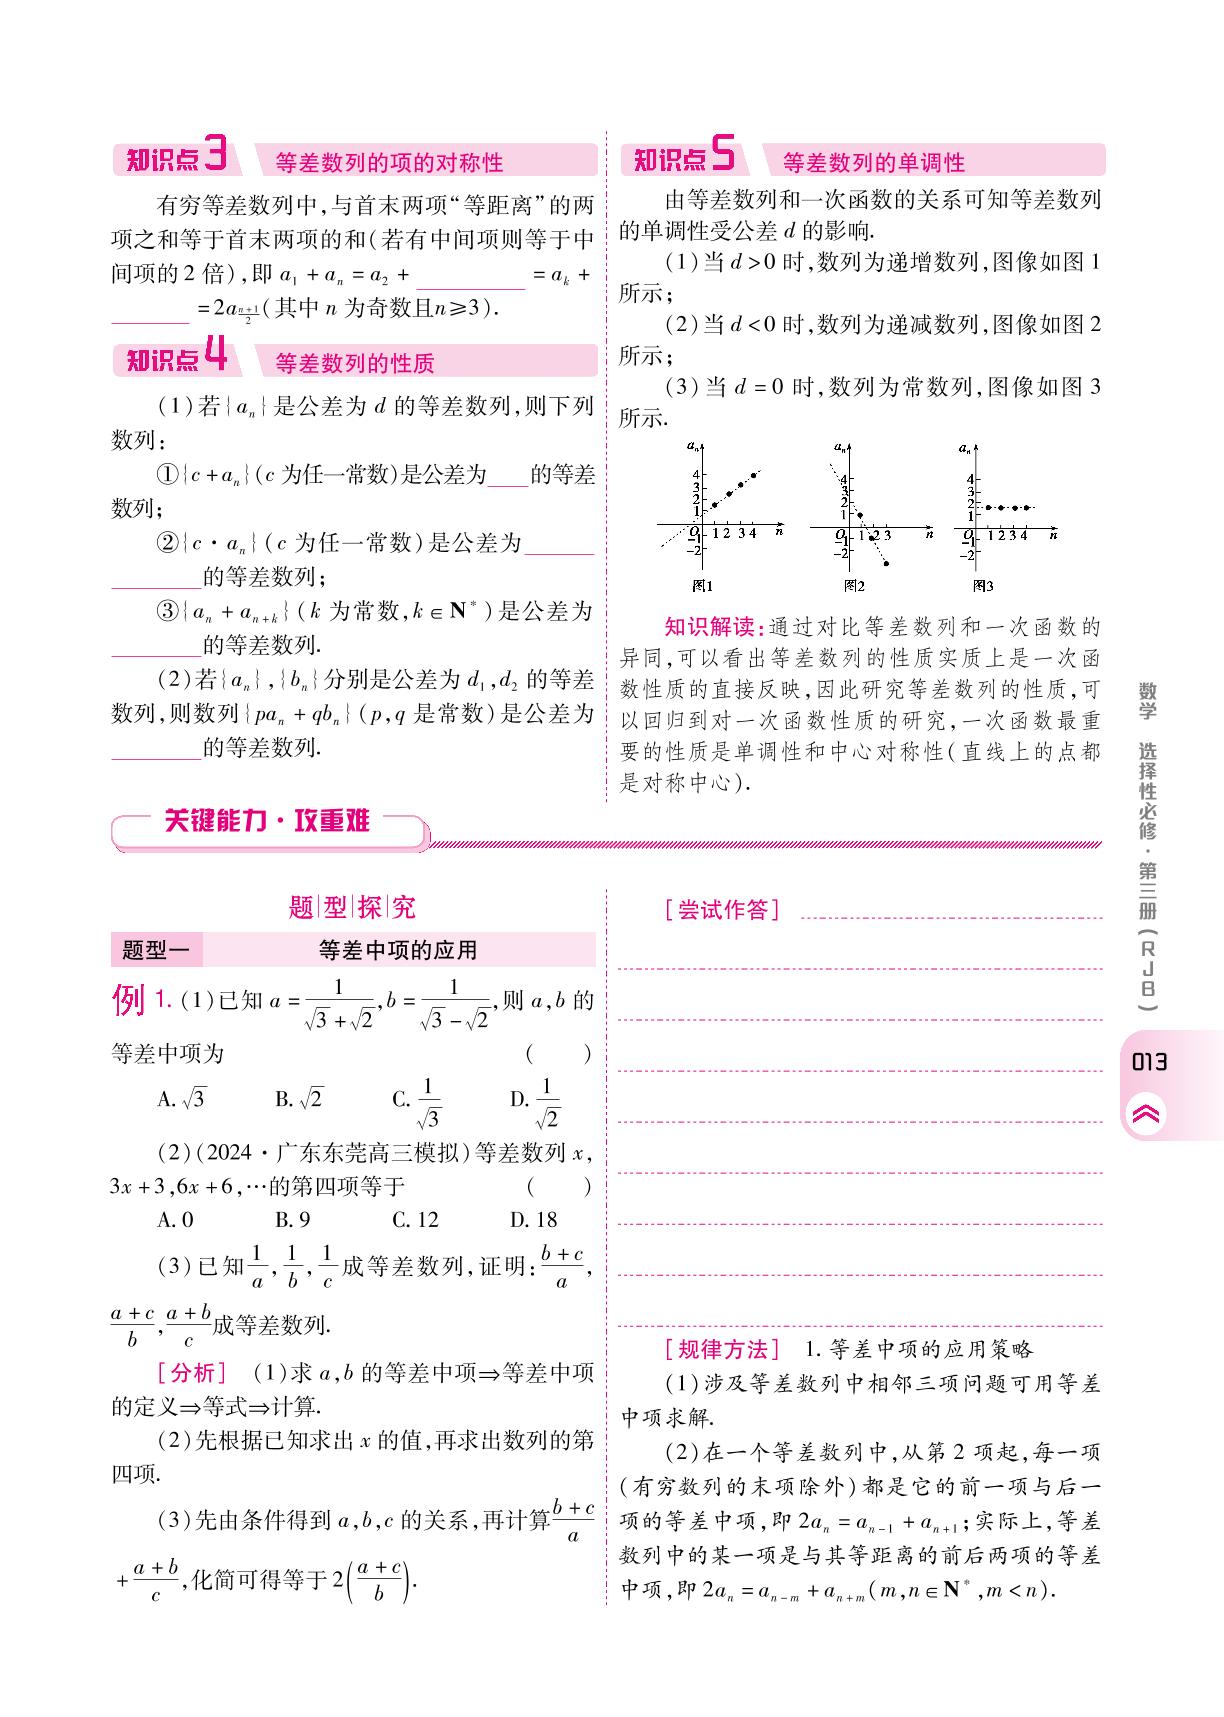 知识点3 等差数列的项的对称性
有穷等差数列中,与首末两项“等距离”的两
项之和等于首末两项的和(若有中间项则等于中
间项的2倍),即 a₁ + aₙ = a₂ + ________ = aₖ +
________ = 2a_{\frac{n+1}{2}}(其中 n 为奇数且n≥3).
知识点4 等差数列的性质
(1)若{aₙ}是公差为 d 的等差数列,则下列
数列:
①{c+aₙ}(c 为任一常数)是公差为____的等差
数列;
②{c·aₙ}(c 为任一常数)是公差为______
________的等差数列;
③{aₙ + aₙ₊ₖ}(k 为常数,k∈N*)是公差为
________的等差数列.
(2)若{aₙ},{bₙ}分别是公差为 d₁,d₂ 的等差
数列,则数列{paₙ + qbₙ}(p,q 是常数)是公差为
________的等差数列.
知识点5 等差数列的单调性
由等差数列和一次函数的关系可知等差数列
的单调性受公差 d 的影响.
(1)当 d>0 时,数列为递增数列,图像如图1
所示;
(2)当 d<0 时,数列为递减数列,图像如图2
所示;
(3)当 d=0 时,数列为常数列,图像如图3
所示.
aₙ 4 3 2 1 O -1 -2 1 2 3 4 n
图1
aₙ 4 3 2 1 O -1 -2 1 2 3 n
图2
aₙ 4 3 2 1 O -1 -2 1 2 3 4 n
图3
知识解读:通过对比等差数列和一次函数的
异同,可以看出等差数列的性质实质上是一次函
数性质的直接反映,因此研究等差数列的性质,可
以回归到对一次函数性质的研究,一次函数最重
要的性质是单调性和中心对称性(直线上的点都
是对称中心).
关键能力·攻重难
题型探究
题型一 等差中项的应用
例1. (1)已知 a=\frac{1}{√3+√2},b=\frac{1}{√3-√2},则 a,b 的
等差中项为 ( )
A. √3 B. √2 C. \frac{1}{√3} D. \frac{1}{√2}
(2)(2024·广东东莞高三模拟)等差数列 x,
3x+3,6x+6,…的第四项等于 ( )
A. 0 B. 9 C. 12 D. 18
(3)已知\frac{1}{a},\frac{1}{b},\frac{1}{c}成等差数列,证明:\frac{b+c}{a},
\frac{a+c}{b},\frac{a+b}{c}成等差数列.
[分析] (1)求 a,b 的等差中项⇒等差中项
的定义⇒等式⇒计算.
(2)先根据已知求出 x 的值,再求出数列的第
四项.
(3)先由条件得到 a,b,c 的关系,再计算\frac{b+c}{a}
+\frac{a+b}{c},化简可得等于 2(\frac{a+c}{b}).
[尝试作答]
[规律方法] 1. 等差中项的应用策略
(1)涉及等差数列中相邻三项问题可用等差
中项求解.
(2)在一个等差数列中,从第2项起,每一项
(有穷数列的末项除外)都是它的前一项与后一
项的等差中项,即 2aₙ = aₙ₋₁ + aₙ₊₁;实际上,等差
数列中的某一项是与其等距离的前后两项的等差
中项,即 2aₙ = aₙ₋ₘ + aₙ₊ₘ(m,n∈N*,m<n).
数学 选择性必修·第三册(RJB)
013